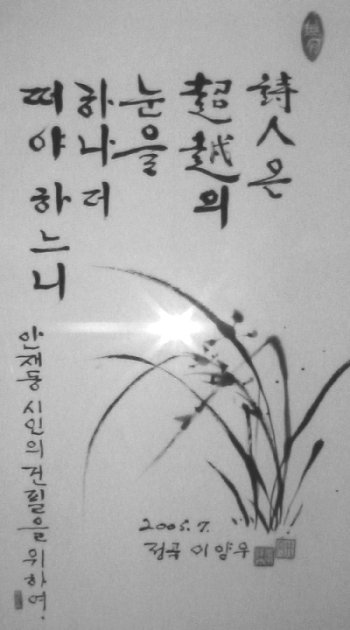 詩人은
超越의
눈을
하나 더
떠야 하느니
안재동 시인의 건필을 위하여.
2005. 7.
정곡 이양우